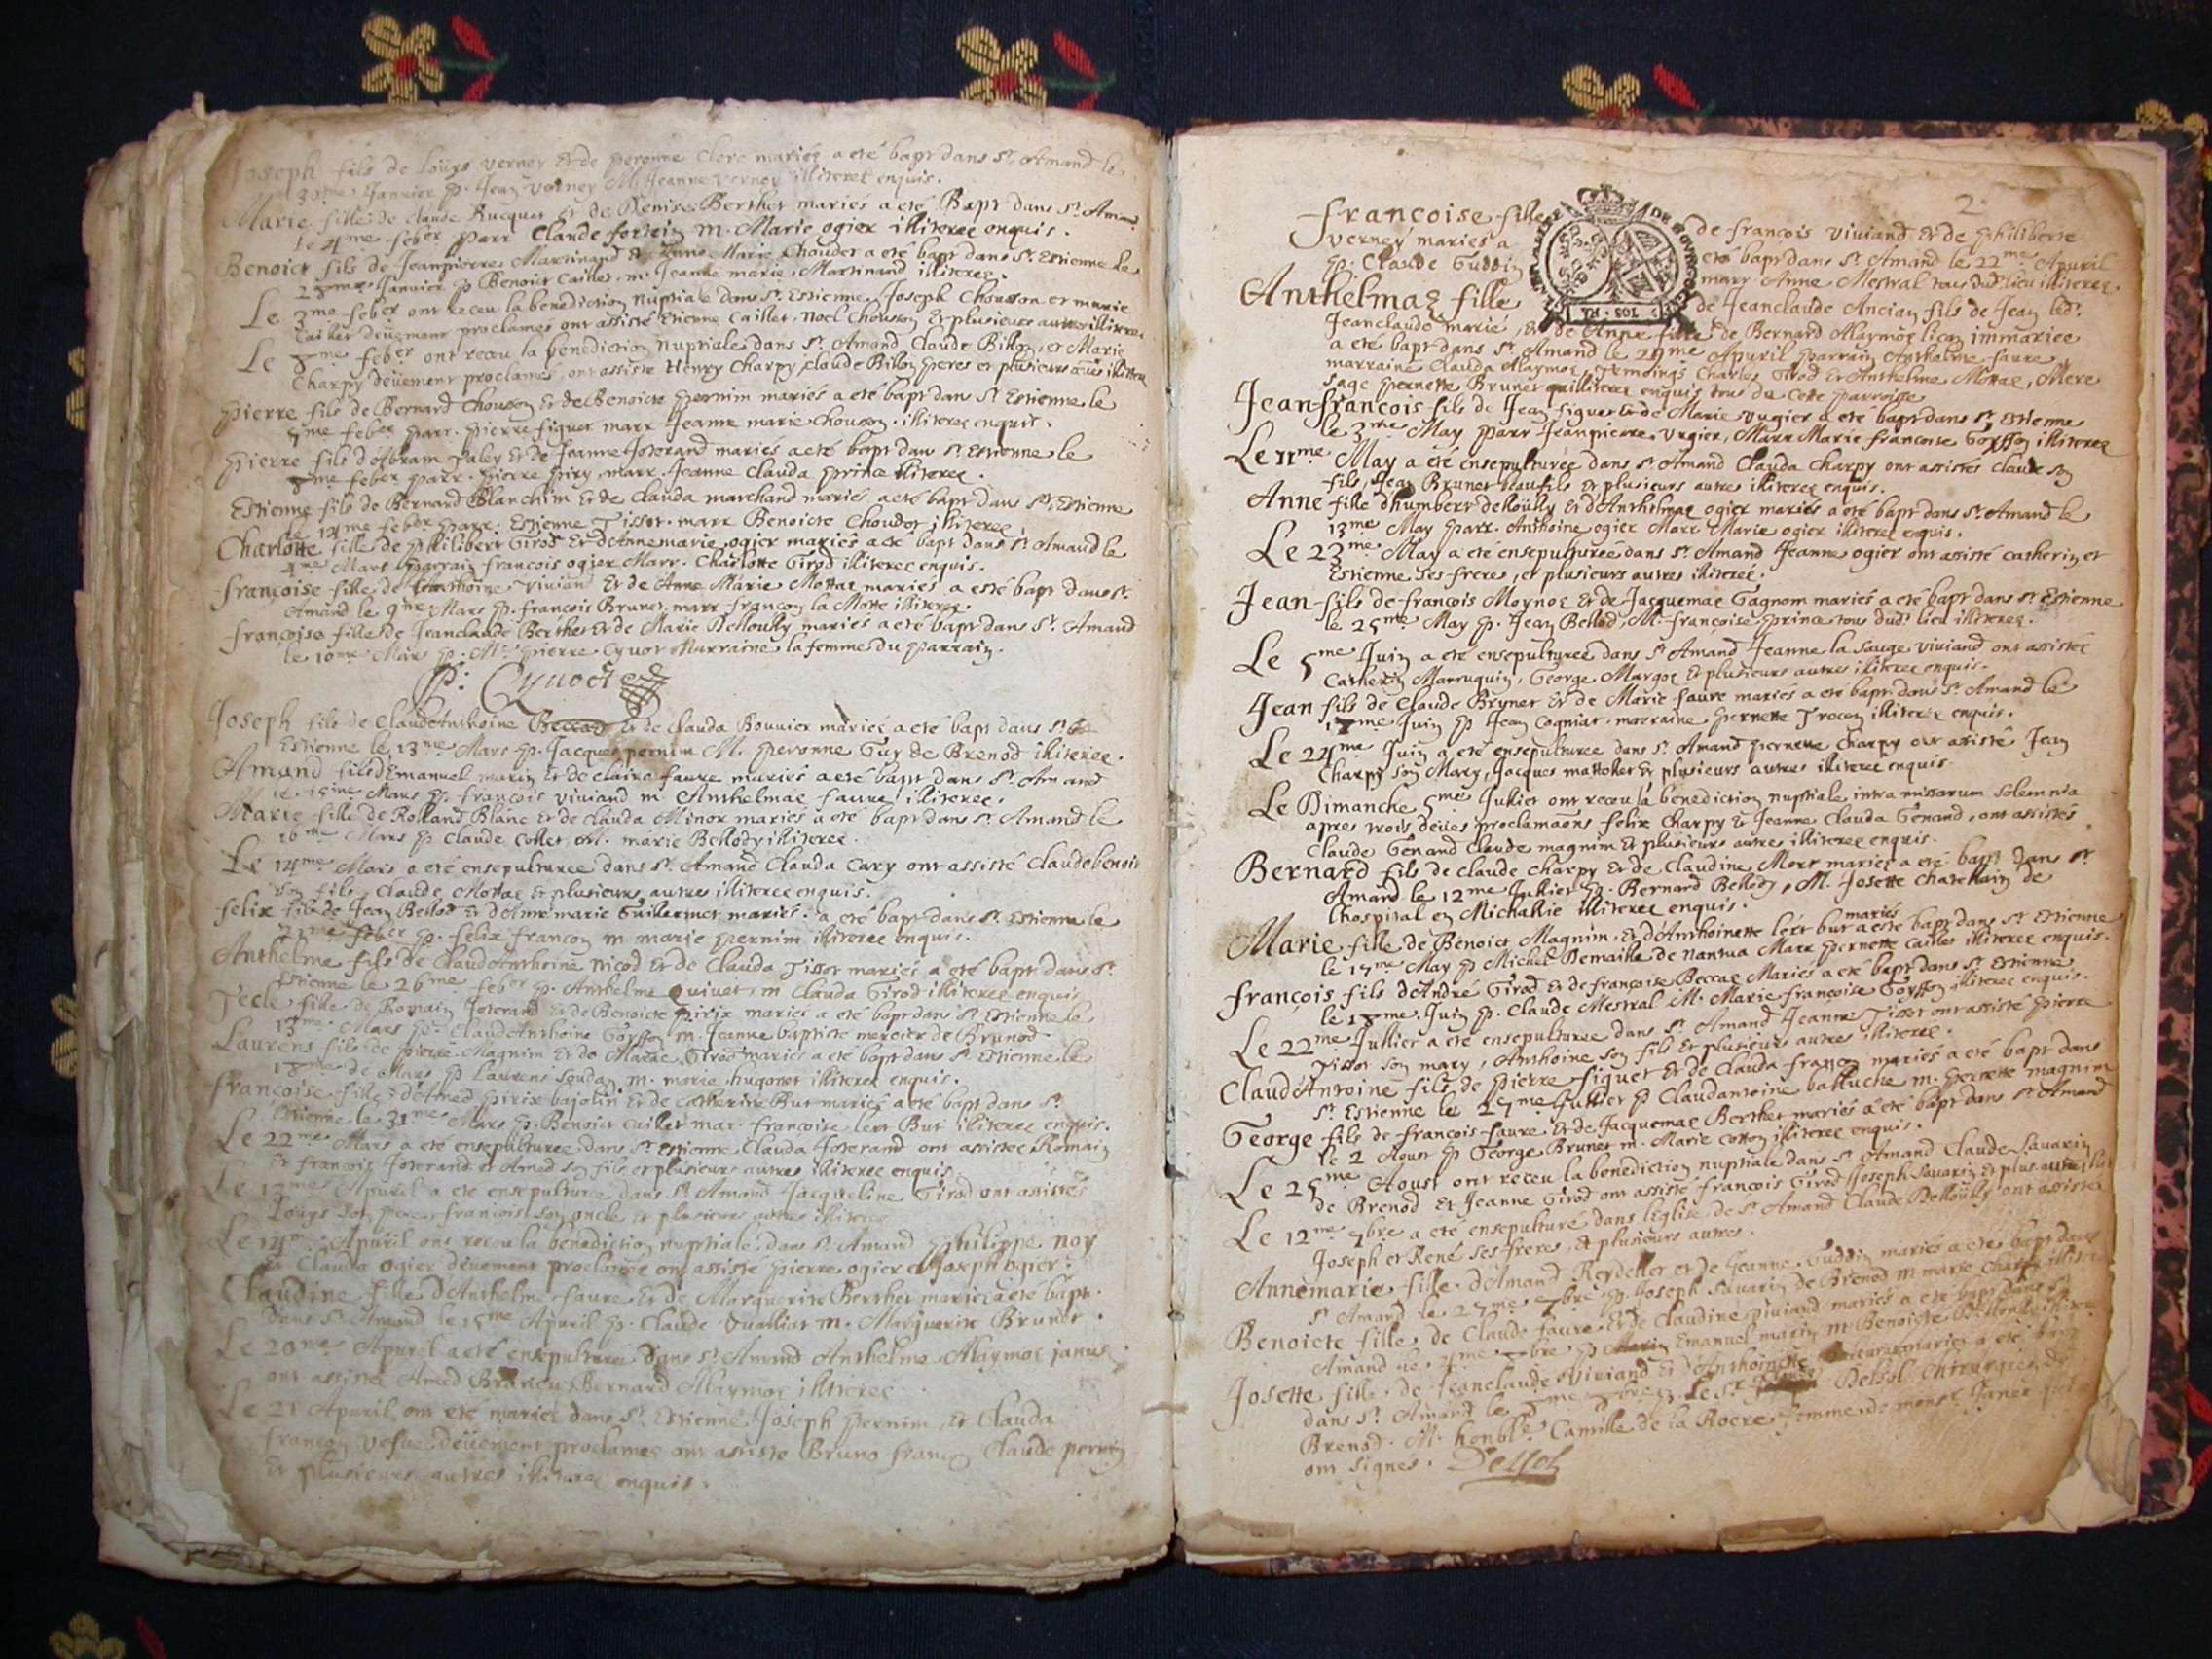 Joseph fils de Louys verney Et de peronne Clerc mariés a eté bapt dans St. Amand le
30me Janvier p. Jean verney M. Jeanne verney illiterez enquis.
Marie fille de Claude Rucquet Et de Denise Berthet mariés a eté Bapt dans St. Amand
le 4me feber parr Claude m. Marie ogier illiterez enquis.
Benoict fils de Jeanpierre Martinand Et Marie Choudet a eté bapt dans St. Estienne le
Janvier p Benoict Caillet. m. Jeanne marie Martinand illiterez.
Le 3me feber ont receu la benediction nuptiale dans St. Estienne Joseph Chousson et marie
Caillet deüement proclamés ont assisté Etienne Caillet. Noel Chousson Et plusieurs autres illiterez
Le 8me feber ont receu la benediction nuptiale dans St. Amand Claude Billon, et Marie
Charpy deüement proclamés, ont assisté Henry Charpy Claude Billon peres et plusieurs
pierre fils de Bernard Chousson Et de Benoicte pernim mariés a eté bapt dans St. Estienne le
5me feber parr. pierre figuet marr Jeanne marie Chousson. illiterez enquis.
pierre fils dAbram Et de Jeanne Joterand mariés a eté bapt dans St. Estienne le
8me feber parr. pierre marr. Jeanne Clauda prince illiterez.
Estienne fils de Bernard Blanchim Et de Clauda marchand mariés a eté bapt dans St. Estienne
le 14me feber parr. Estienne Tissot. marr Benoicte Choudet illiterez.
Charlotte fille de philibert Girod Et dAnnemarie ogier mariés a eté bapt dans St Amand le
Mars parrain francois ogier Marr. Charlotte Girod illiterez enquis.
françoise fille de Anthoine Viviand Et de Anne Marie Mottaz mariés a esté bapt dans St.
Amand le 9me Mars p. françois Brunet, marr françon la Motte illiterez.
françoise fille de Jeanclaude Berthet Et de Marie Dellouly mariés a eté bapt dans St. Amand
le 10me Mars p. Mr. pierre Cynot Marraine la femme du parrain.
P: Cynoct
Joseph fils de ClaudeAnthoine Et de Clauda Bouvier mariés a eté bapt dans St.
Estienne le 13me Mars p. Jacques pernim M. peronne Guy de Brenod illiterez.
Amand fils dEmanuel marin Et de claire faure mariés a eté bapt dans St. Amand
le 15me Mars p. françois viviand m. Anthelmaz faure illiterez.
Marie fille de Rolland Blanc Et de Clauda Minot mariés a eté bapt dans St. Amand le
16me Mars p Claude Collet, M. marie Bellody illiterez.
Le 14me Mars a eté ensepulturee dans St. Amand Clauda Cary ont assisté Claudebenoit
son fils, Claude Mottaz Et plusieurs autres illiterez enquis.
felix fils de Jean Bellod Et dAnnemarie Guillermet mariés. a eté bapt dans St. Estienne le
feber p. felix françon m marie pernim illiterez enquis.
Anthelme fils de ClaudAnthoine nicod Et de Clauda Tissot mariés a eté bapt dans St.
Estienne le 26me feber p. Anthelme m Clauda Girod illiterez enquis
Tecle fille de Romain Joterand Et de Benoicte pirix mariés a eté bapt dans St. Estienne le
13me Mars p. ClaudAnthoine Goyffon m. Jeanne baptiste mercier de Brunod.
Laurens fils de pierre Magnim Et de Girod mariés a eté bapt dans St Estienne le
18me de Mars p Laurens m. marie hugonet illiterez enquis.
françoise fille dAmed pirix bajolin Et de catherine But mariés a eté bapt dans St.
Estienne le 31me Mars p. Benoict Caillet mar. françoise lert But illiterez enquis.
Le 22me Mars a eté ensepulturee dans St Estienne Clauda Joterand ont assistez Romain
Et françois Joterand et Amed son fils et plusieurs autres illiterez enquis
Le 13me Apuril a eté ensepulturee dans St Amand Jacqueline Girod ont assistés
Louys son pere, francois son oncle Et plusieurs autres illiterez
Le 14me Apuril ont receu la benediction nuptiale dans St Amand philippe noy
Et Clauda ogier deüement proclamés ont assisté pierre ogier et Joseph ogier.
Claudine fille dAnthelme faure Et de Marguerite Berthet mariés a eté bapt.
dans St. Amand le 15me Apuril p. Claude m. Marguerite Brunet.
Le 20me Apuril a eté ensepulturé dans St Amand Anthelme Maymoz
ont assistez Amed Bernard Maymoz illiterez
Le 21 Apuril, ont eté mariez dans St. Estienne Joseph pernim, Et Clauda
françon vefue deüement proclamez ont assisté Bruno françon Claude pernin
Et plusieurs autres illiterez enquis.
2
françoise fille de françois viviand Et de philiberte
verney mariés a eté bapt dans St Amand le 22me Apuril
p. Claude Guddin marr Anne Mestral tous dud. lieu illiterez.
Anthelmaz fille de Jeanclaude Ancian fils de Jean led.
Jeanclaude marié, Et de Anne fille de Bernard Maymoz immariee
a eté bapt dans St Amand le 29me Apuril parrain Anthelme faure
marraine Clauda Maymoz, Temoings Charles Girod Et Anthelme Mottaz, Mere
sage pernette Brunet illiterez enquis tous de cette parroisse
Jeanfrançois fils de Jean figuet Et de Marie vugier a eté bapt dans St Estienne
le 3me May parr Jeanpierre vugier, Marr Marie francoise Goyffon illiterez
Le 11me May a eté ensepulturee dans St Amand Clauda Charpy ont assistés Claude son
fils, Jean Brunet beaufils Et plusieurs autres illiterez enquis.
Anne fille dhumbert Dellouly Et dAnthelmaz ogier mariés a eté bapt dans St. Amand le
13me May parr. Anthoine ogier Marr Marie ogier illiterez enquis.
Le 23me May a eté ensepulturée dans St. Amand Jeanne ogier ont assisté catherin et
Estienne ses freres, et plusieurs autres illiterez.
Jean fils de françois Moynoz Et de Jacquemaz Gagnom mariés a eté bapt dans St. Estienne
le 25me May p. Jean Bellod, M. françoise prince tous dud. lieu illiterez.
Le 5me Juin a eté ensepulturee dans St Amand Jeanne la sauge viviand ont assistez
Catherin Marruquin, George Margoz Et plusieurs autres illiterez enquis.
Jean fils de Claude Brunet Et de Marie faure mariés a eté bapt dans St. Amand le
17me Juin p Jean Cogniat. marraine pernette Trocon illiterez enquis.
Le 24me Juin a eté ensepulturee dans St. Amand pernette Charpy ont assisté Jean
Charpy son Mary, Jacques Et plusieurs autres illiterez enquis
Le Dimanche 5me Jullier ont receu la benediction nuptiale intra missarum solemnia
apres trois deües proclamaons felix Charpy Et Jeanne Clauda Genand, ont assistés
Claude Genand Claude magnim Et plusieurs autres illiterez enquis.
Bernard fils de Claude Charpy Et de Claudine Mort mariez a eté bapt dans St.
Amand le 12me Jullier p. Bernard Bellody, M. Josette Chatellain de
lhospital en Michallie illiterez enquis.
Marie fille de Benoict Magnim. Et dAnthoinette lért but mariés a esté bapt dans St Estienne
le 15me May p Michel Demaille de nantua Marr pernette Caillet illiterez enquis.
françois fils dAndré Girod Et de françoise Beccaz Mariés a eté bapt dans St Estienne
le 18me Juin p. Claude Mestral M. Marie françoise Goyffon illiterez enquis.
Le 22me Jullier a eté ensepulturee dans St. Amand Jeanne Tissot ont assisté pierre
Tissot son mary, Anthoine son fils Et plusieurs autres illiterez.
ClaudAntoine fils de pierre figuet Et de Clauda françon mariés a eté bapt dans
St. Estienne le 25me Jullier p Claudantoine balluche m. pernette magnim
George fils de françois faure Et de Jacquemaz Berthet mariés a eté bapt dans St Amand
le 2 Aoust p George Brunet m. Marie Cotton illiterez enquis.
Le 25me Aoust ont receu la benediction nuptiale dans St. Amand Claude Savarin
de Brenod Et Jeanne Girod ont assisté françois Girod Joseph Savarin Et plus. autres
Le 12me 7bre a eté ensepulturé dans lEglise de St Amand Claude Dellouly ont assistez
Joseph et René ses freres, Et plusieurs autres.
Annemarie fille dAmand Reydellet et de Jeanne Guddin mariés a eté bapt dans
St Amand le 25me 7bre p. Joseph Savarin de Brenod m marie
Benoicte fille de Claude faure Et de Claudine viviand mariés a eté bapt dans St
Amand le p Emanuel marin m Benoicte
Josette fille de Jeanclaude Viviand Et dAnthoinette mariés a eté bapt
dans St. Amand le p. le Sr. Delsol chirurgien de
Brenod. M. honble. Camille de la Rocre femme de monsr. Janet
ont signez. Delsol